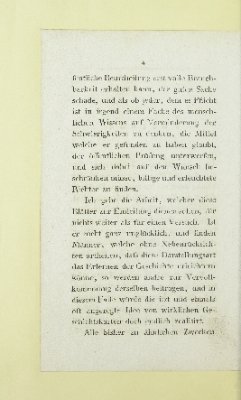 fentliche Beurtheilung erst volle Brauch-
barkeit erhalten kann, der guten Sache
schade, und als ob jeder, dem es Pflicht
ist in irgend einem Fache des mensch-
lichen Wissens auf Verminderung der
Schwierigkeiten zu denken, die Mittel
welche er gefunden zu haben glaubt,
der öffentlichen Prüfung unterwerfen,
und sich dabei auf den Wunsch be-
schränken müsse, billige und erleuchtete
Richter zu finden.
Ich gebe die Arbeit, welcher diese
Blätter zur Einleitung dienen sollen, für
nichts weiter als für einen Versuch. Ist
er nicht ganz unglücklich, und finden
Männer, welche ohne Nebenrücksich-
ten urtheilen, daß diese Darstellungsart
das Erlernen der Geschichte erleichtern
könne, so werden andre zur Vervoll-
kommnung derselben beitragen, und in
diesem Falle würde die itzt und ehmals
oft angeregte Idee von wirklichen Ge-
schichtskarten doch endlich realisirt.
Alle bisher zu ähnlichen Zwecken